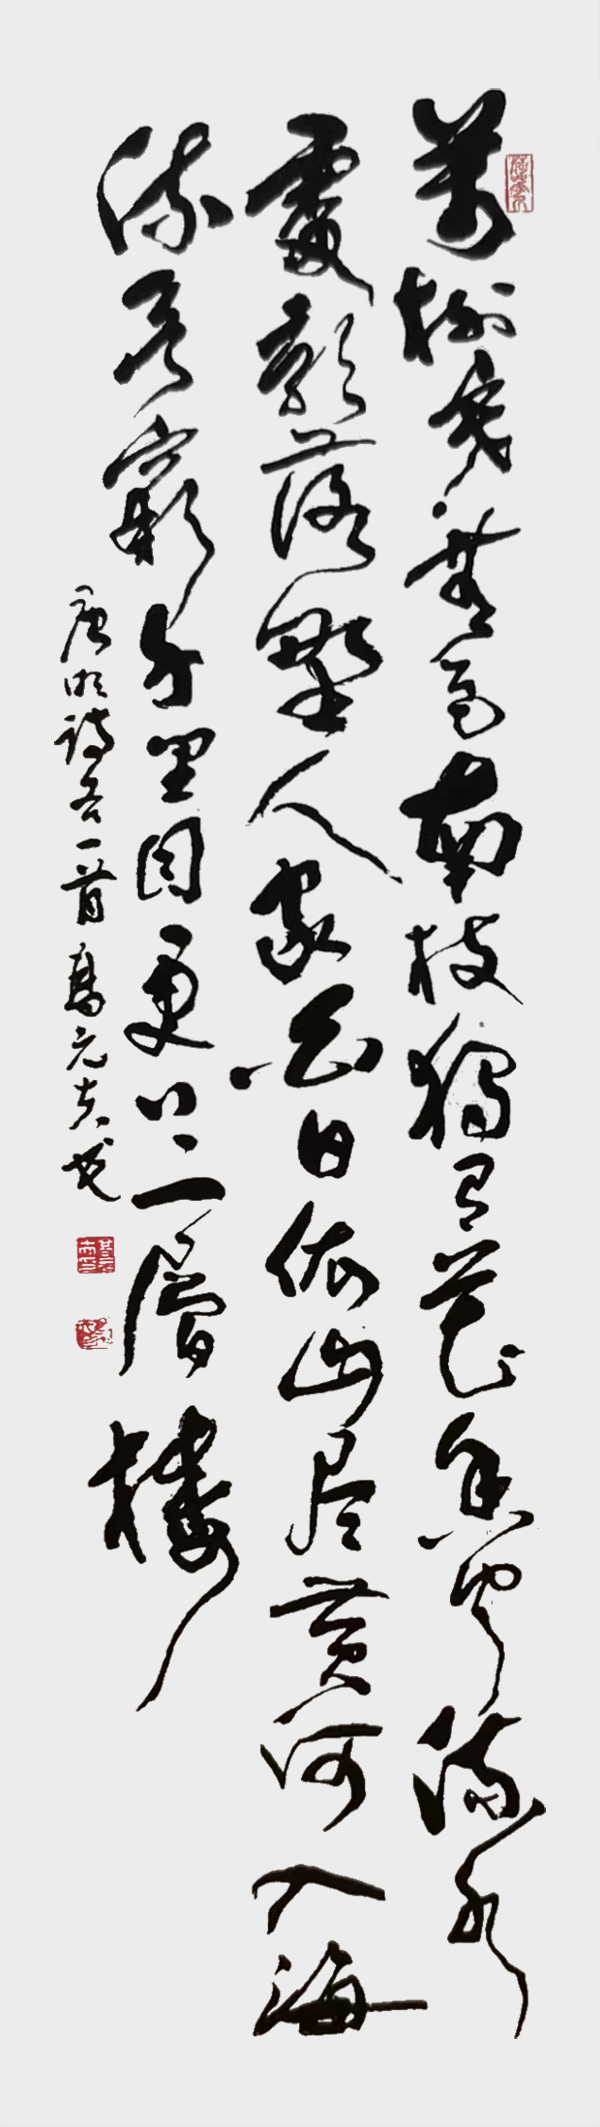 萬樹寒無色南枝獨有花香聞流水
處影落野人家白日依山尽黄河入海
流欲窮千里目更上一層樓
唐明詩各一首